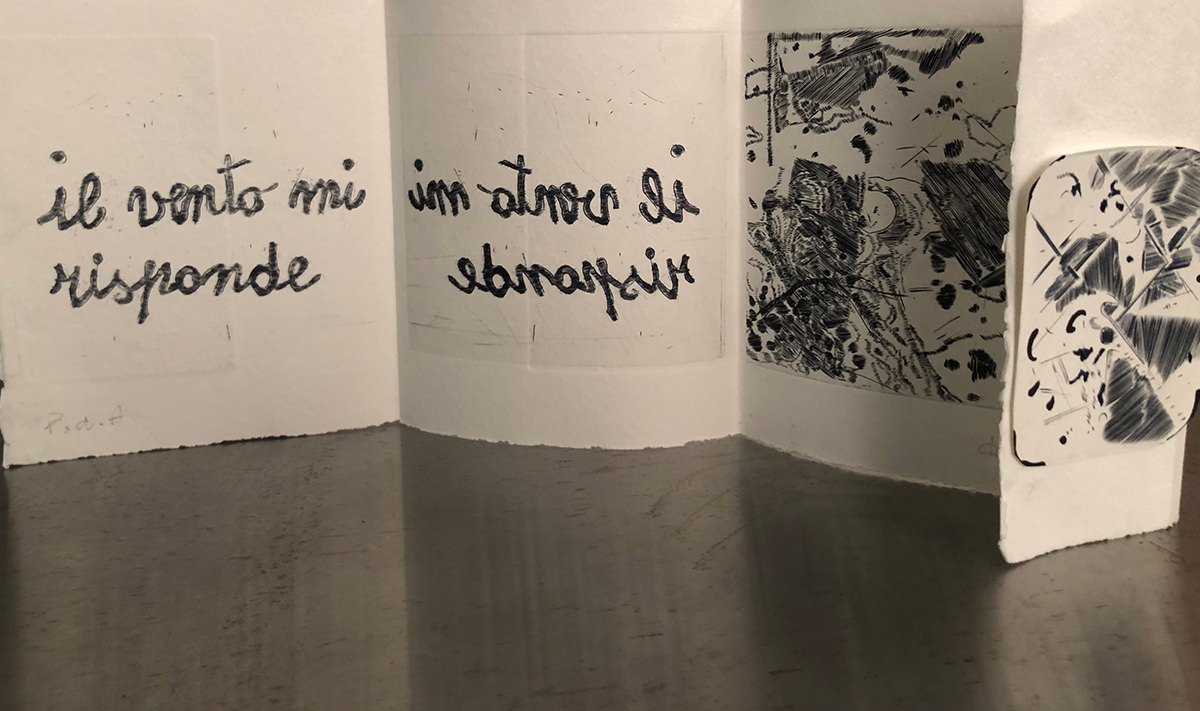 il vento mi
risponde
il vento mi
risponde
P.d.A